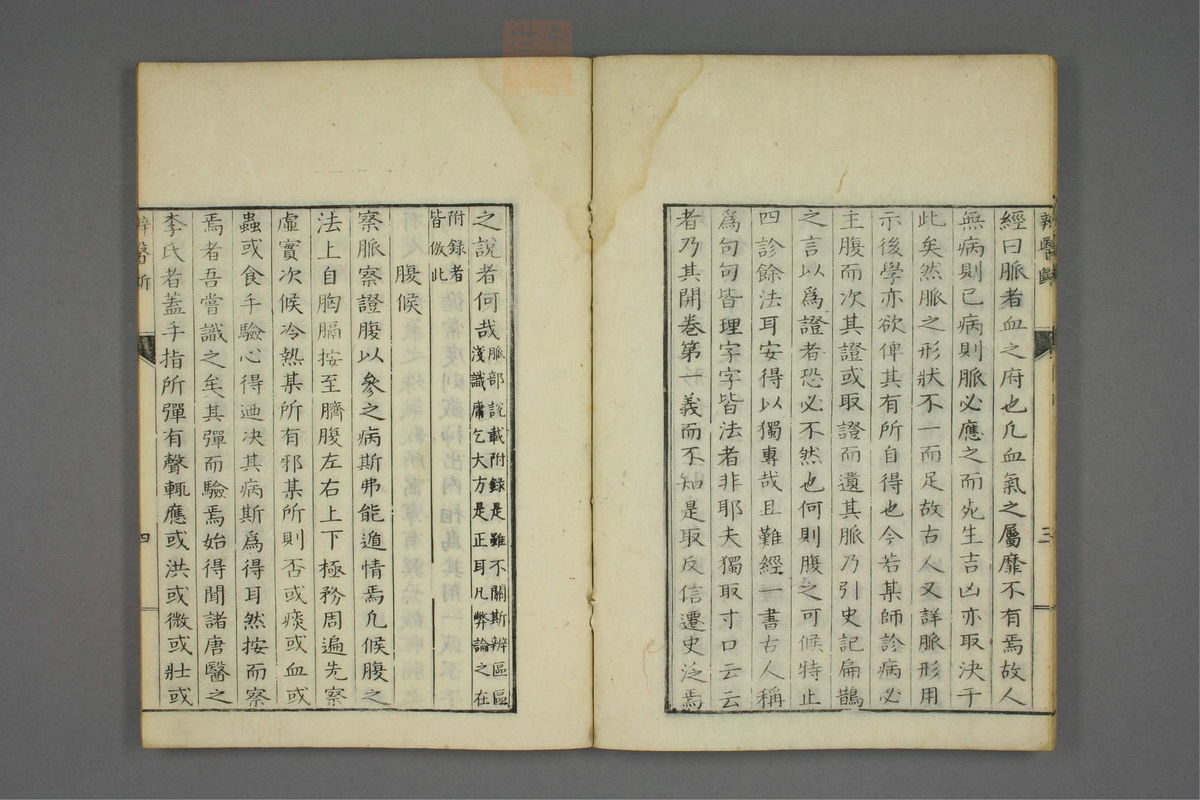 辨醫斷
三
經曰脈者血之府也凢血氣之屬靡不有焉故人
無病則已病則脈必應之而死生吉凶亦取決于
此矣然脈之形狀不一而足故古人又詳脈形用
示後學亦欲俾其有所自得也今若某師診病必
主腹而次其證或取證而遺其脈乃引史記扁鵲
之言以爲證者恐必不然也何則腹之可候特止
四診餘法耳安得以獨專哉且難經一書古人稱
爲句句皆理字字皆法者非耶夫獨取寸口云云
者乃其開卷第一義而不知是取反信遷史泛焉
之說者何哉脈部說載附錄是雖不關斯辨區區
淺識庸乞大方是正耳凢弊論之在
附錄者
皆倣此
腹候
察脈察證腹以參之病斯弗能遁情焉凢候腹之
法上自胸膈按至臍腹左右上下極務周遍先察
虛實次候冷熱某所有邪某所則否或痰或血或
蟲或食手驗心得廼决其病斯爲得耳然按而察
焉者吾嘗識之矣其彈而驗焉始得聞諸唐醫之
李氏者蓋手指所彈有聲輒應或洪或微或壯或
辨醫斷
四